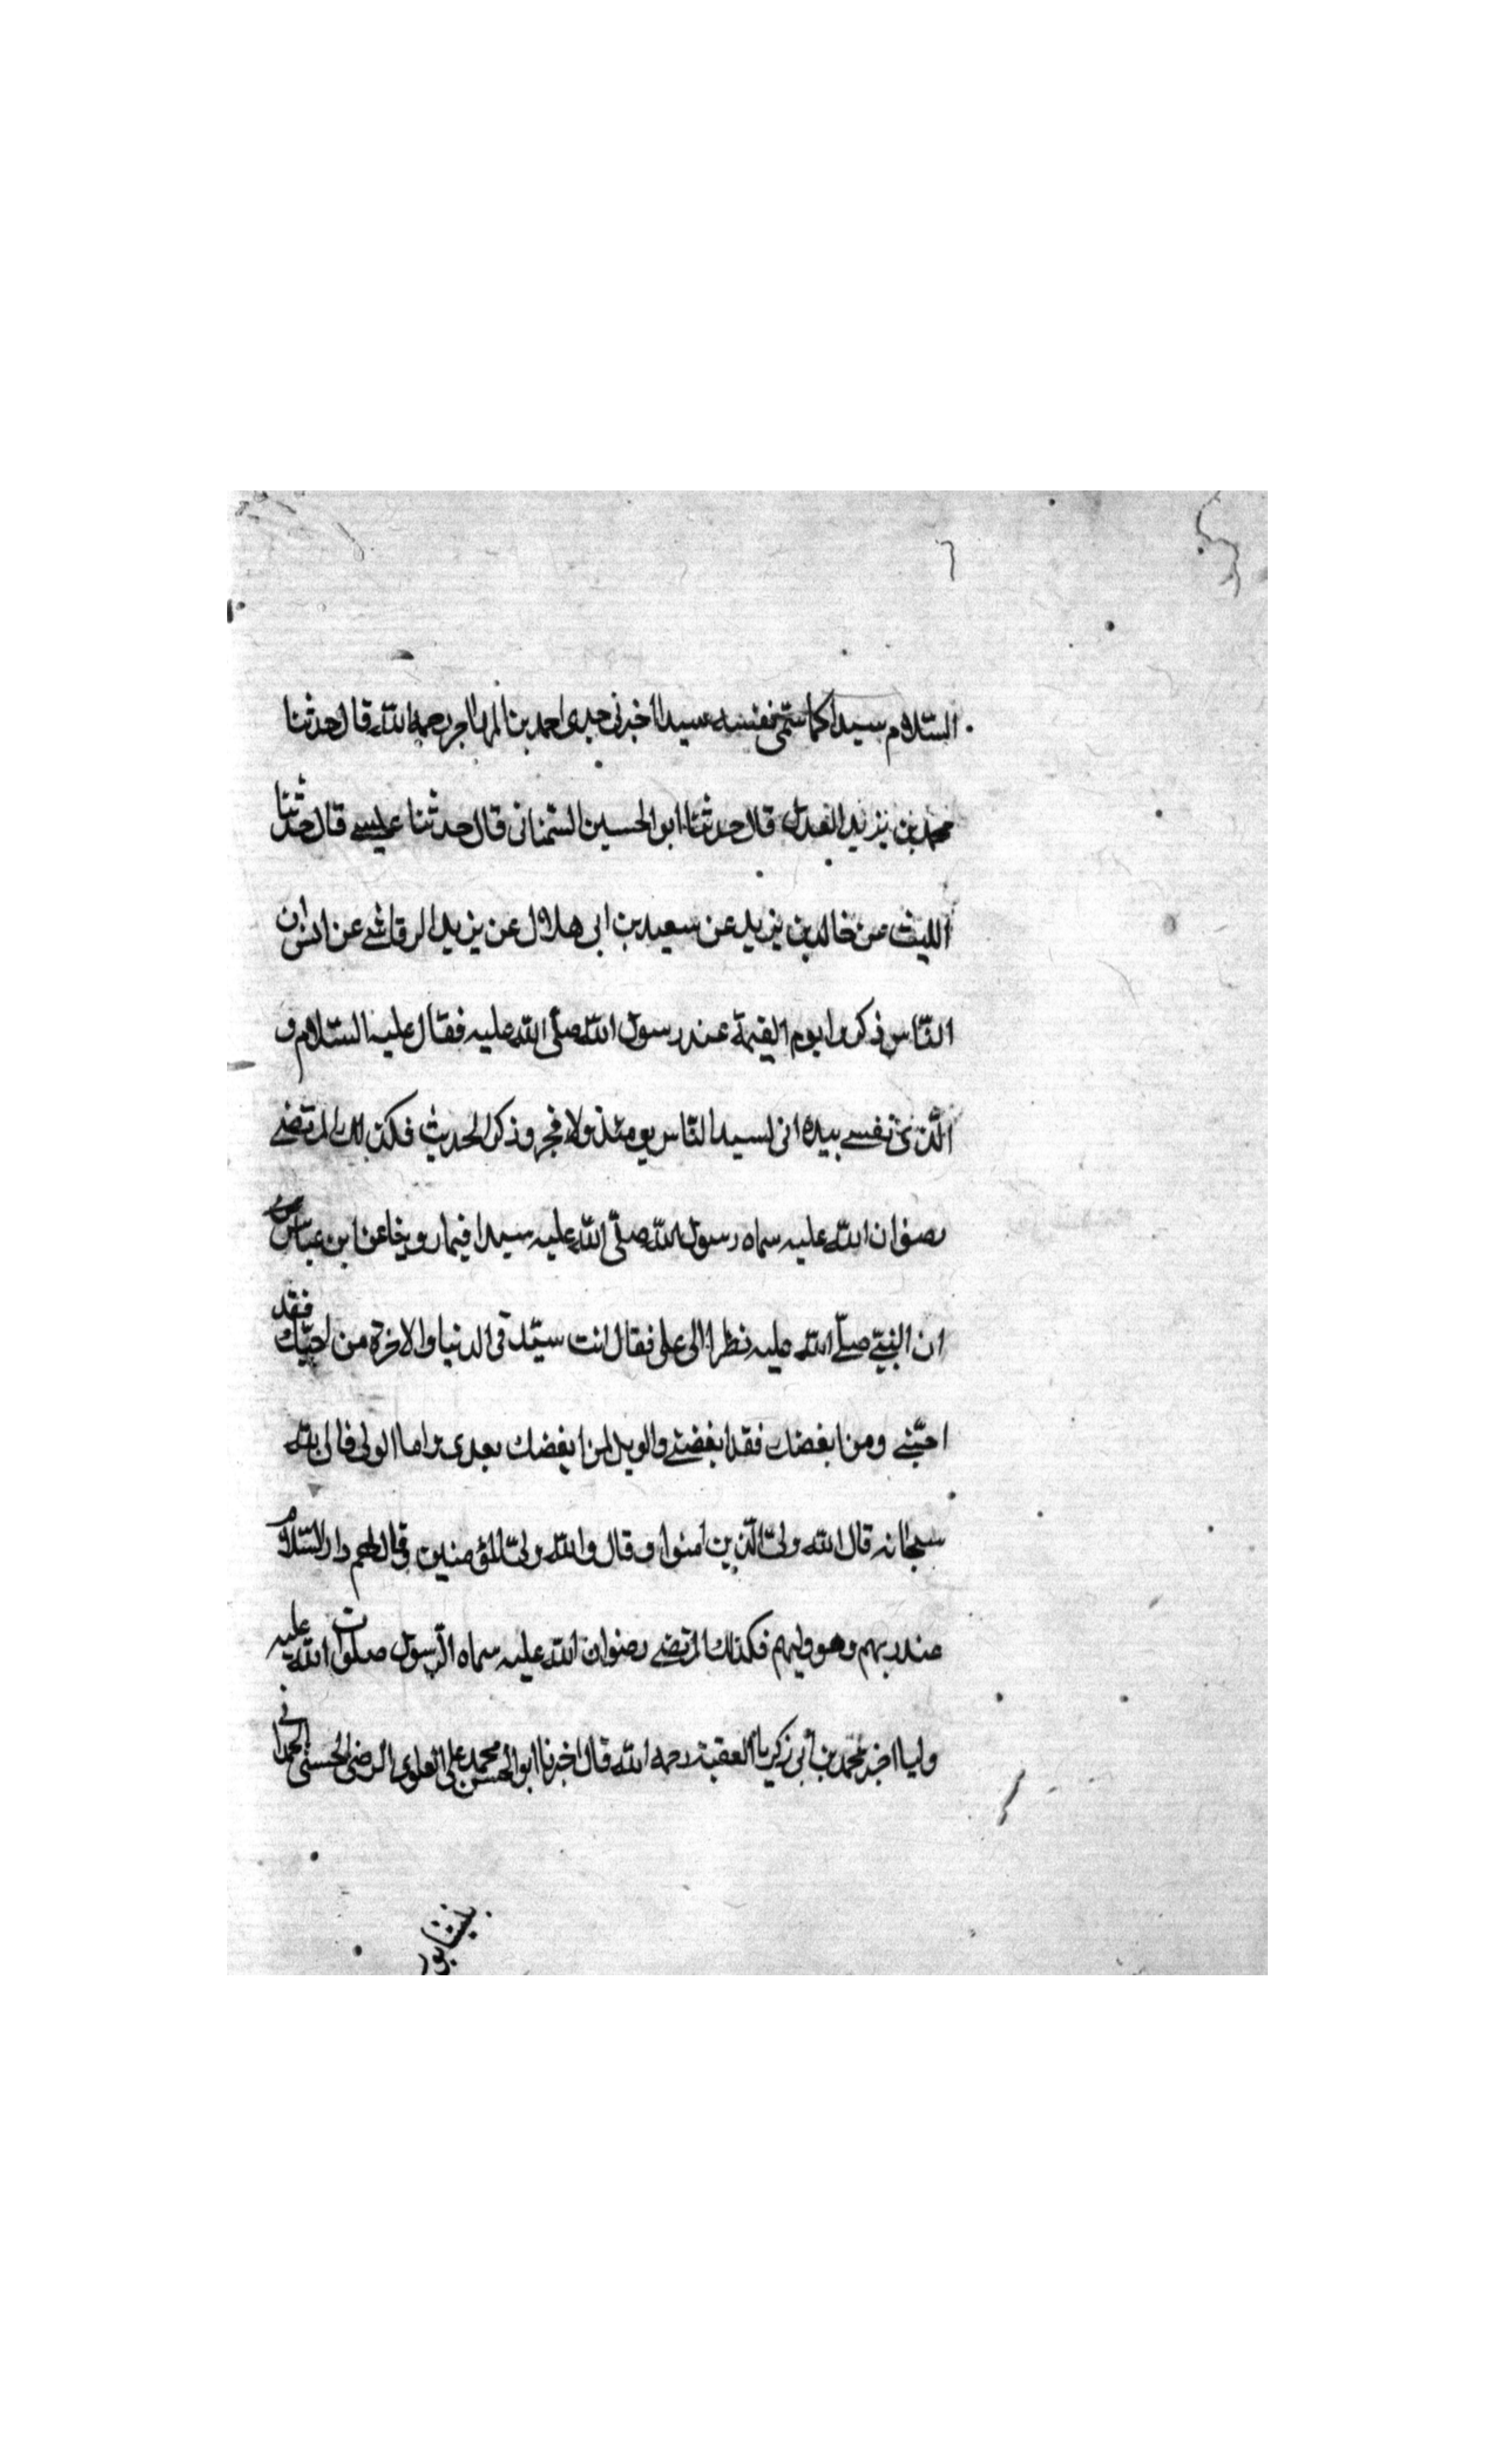 السّلام سيدا كما سمّى نفسه سيدا اخبرنى جدى احمد بن المهاجر رحمه الله قال حدثنا
محمد بن يزيد العدل قال حدثنا ابو الحسين السّمنانى قال حدثنا عيسى قال حدثنا
الليث عن خالد بن يزيد عن سعيد بن ابى هلال عن يزيد الرقاشى عن انس ان
النّاس ذكروا يوم القيمة عند رسول الله صلّى الله عليه فقال عليه السّلام و
الّذى نفسى بيده انى لسيد النّاس يومئذ ولا فخر وذكر الحديث فكذلك المرتضى
رضوان الله عليه سماه رسول الله صلّى الله عليه سيدا فيما روينا عن ابن عباس
ان النبىّ صلّى الله عليه نظر الى على فقال انت سيّد فى الدنيا والاخرة من احبّك فقد
احبّنى ومن ابغضك فقد ابغضنى والويل لمن ابغضك بعدى اما الولى فالى الله
سبحانه قال الله ولىّ الّذين امنوا وقال والله ولىّ المؤمنين وقال لهم دار السّلام
عند ربهم وهو وليهم فكذلك المرتضى رضوان الله عليه سماه الرّسول صلوات الله عليه
وليا اخبر محمد بن أبى زكريا رحمه الله قال اخبرنا ابو الحسن محمد على العلوى الرضى الحسنى